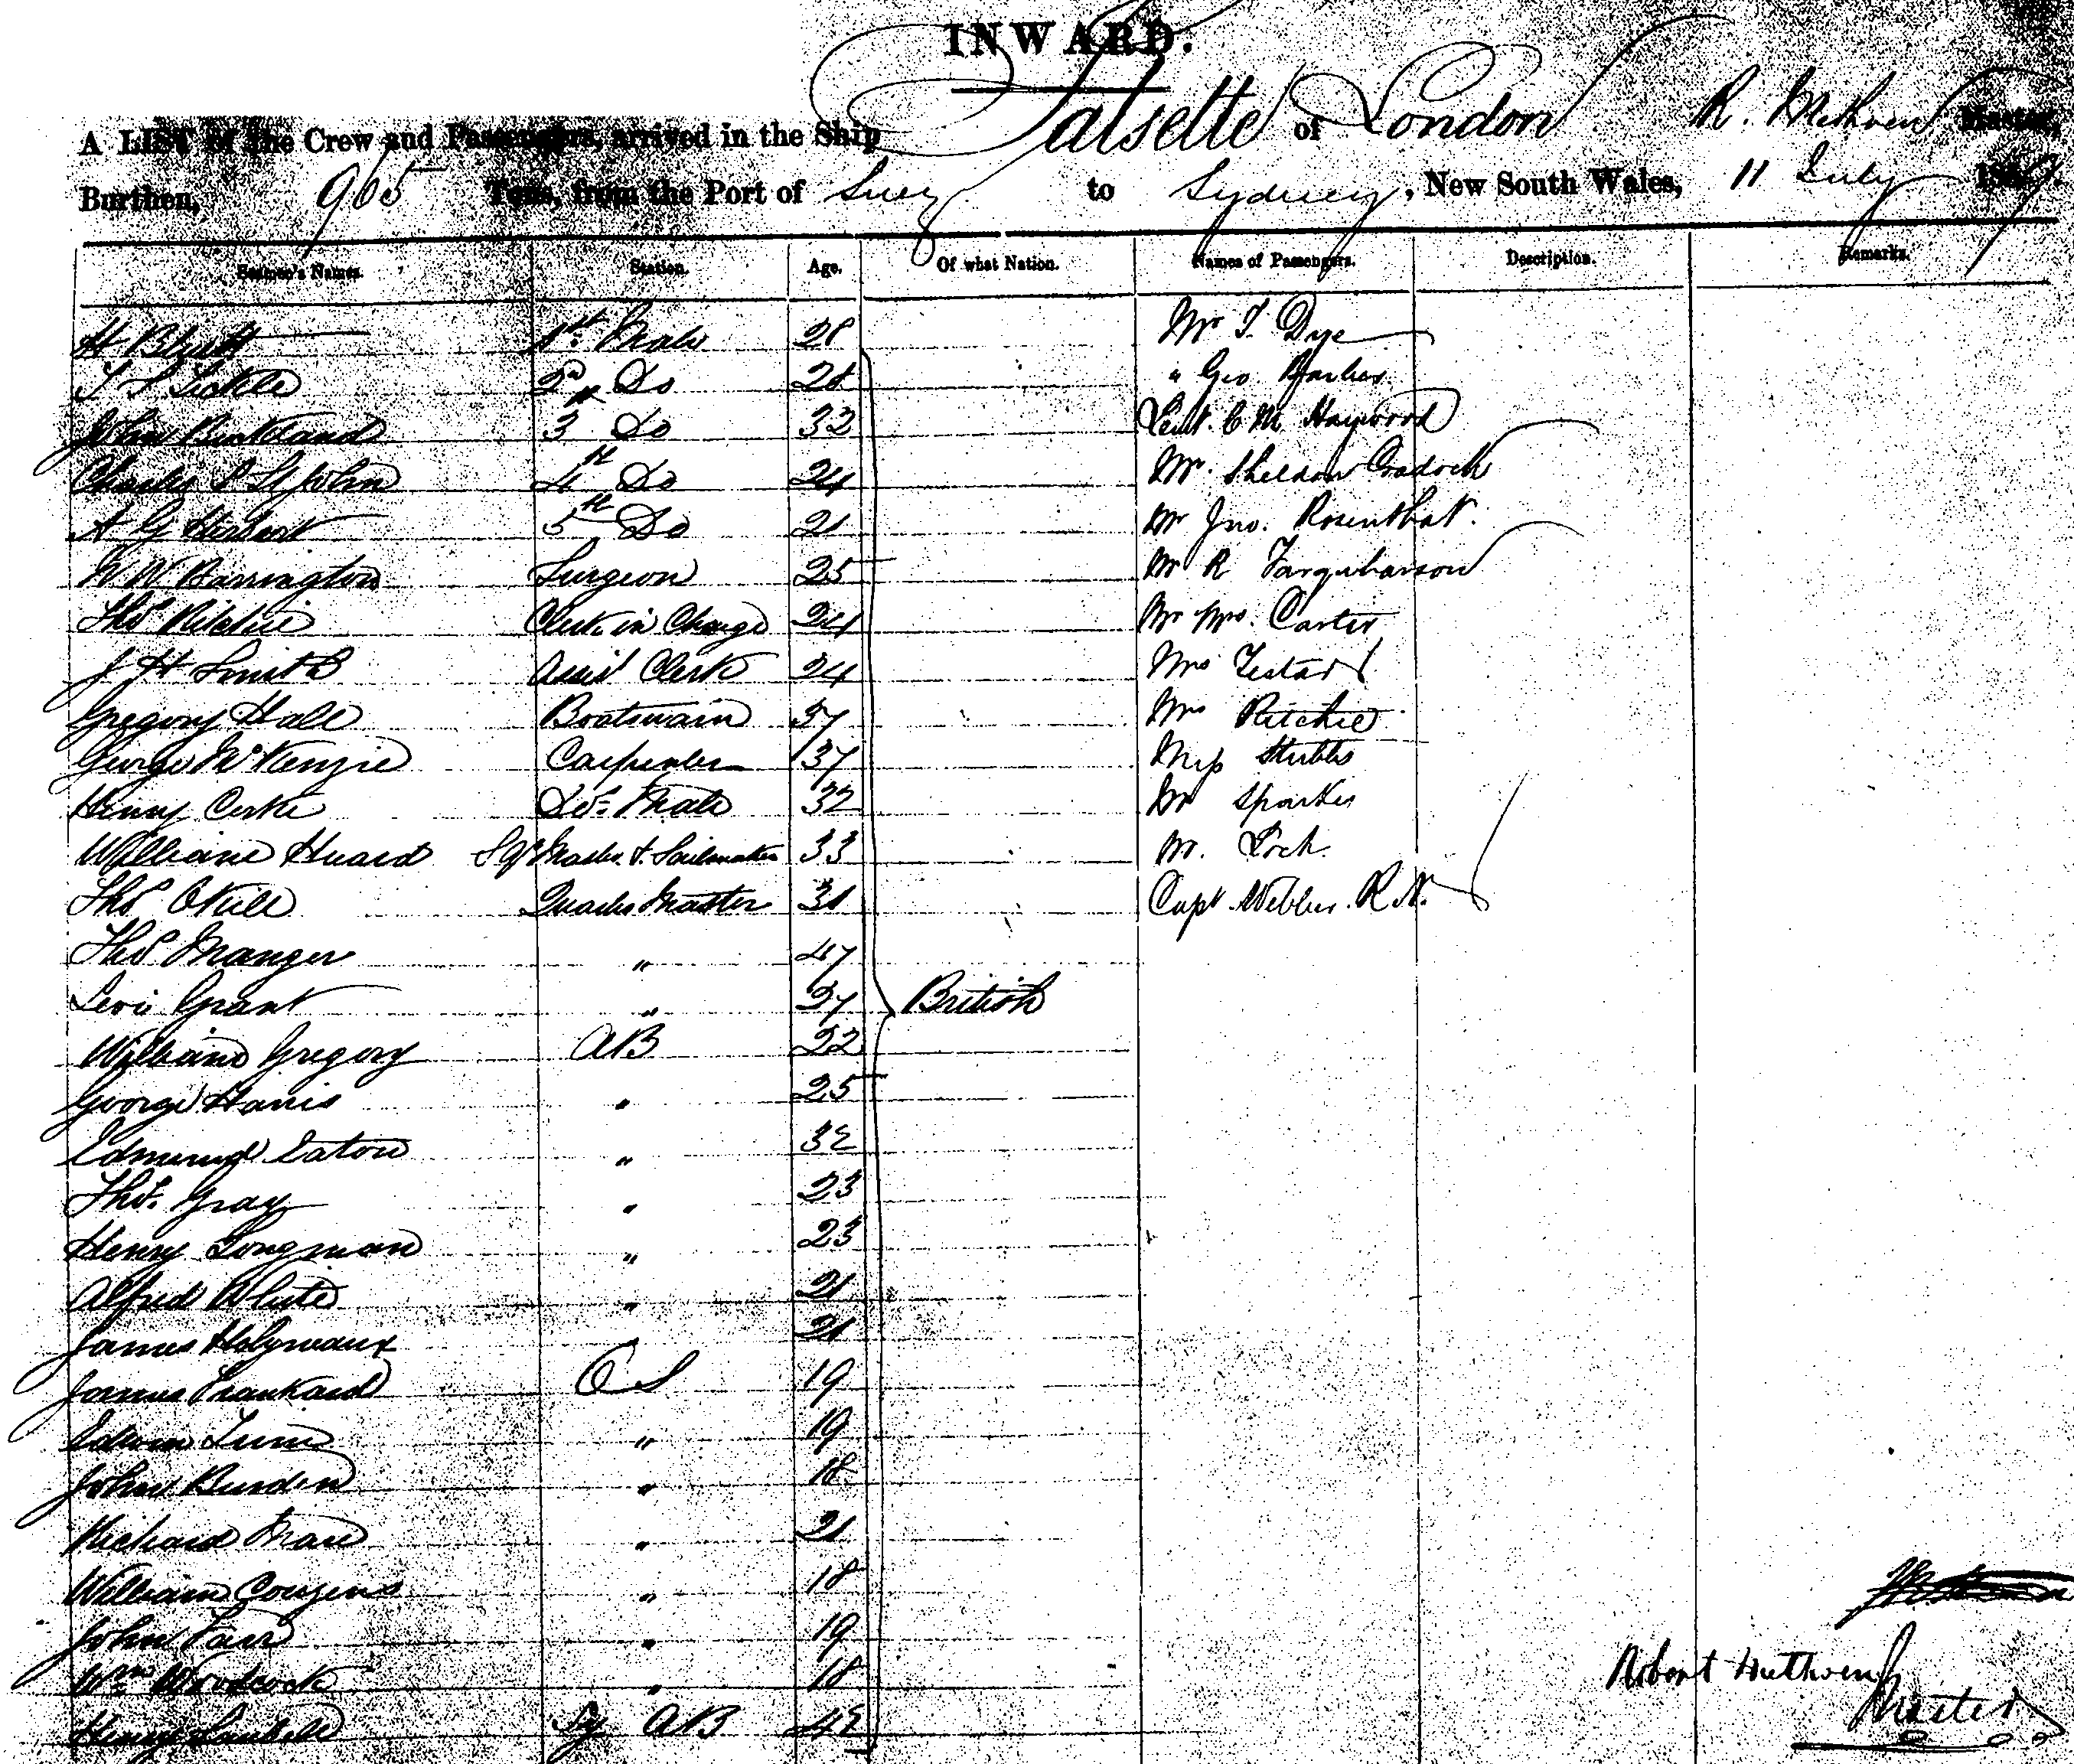 INWARD.
A LIST of the Crew and Passengers, arrived in the Ship Salsette of London R. Methven Master,
Burthen, 965 Tons, from the Port of Suez to Sydney, New South Wales, 11 July 1859.
Seamen's Names. Station. Age. Of what Nation. Names of Passengers. Description. Remarks.
H 1st Mate 28 Mr T. Dye
T S Tickle 2nd Do 28 " Geo Barber
John 3 Do 32 Lieut. C M Haywood
Charles St John 4th Do 24 Mr. Sheldon Cradock
A G Herbert 5th Do 21 Mr Jno. Rosenthal.
W W Barrington Surgeon 25 Mr R Farquharson
Thos Ritchie Clerk in Charge 24 Mr Mrs. Carter
J H Smith Assist Clerk 24 Mrs Testar
Gregory Hall Boatswain 37 Mrs Ritchie
George McKenzie Carpenter 37 Miss Stubbs
Henry Do. Mate 32 Mr Sparkes
William Huard Sailmaker 33 Mr. Loch.
Thos Quarter Master 31 Capt Webber R.N.
Thos Manger " 47
Levi Grant " 27 British
William Gregory AB 22
George Harris " 25
Edmund Eaton " 32
Thos. Gray " 23
Henry Longman " 23
Alfred White " 21
James Holyneaux 21
James Prankard OS 19
Edwin " 19
John Burden " 18
Richard " 21
William Cousens " 18
John Farr " 19
Wm Woodcock " 18
Henry AB
Robert Methven
Master